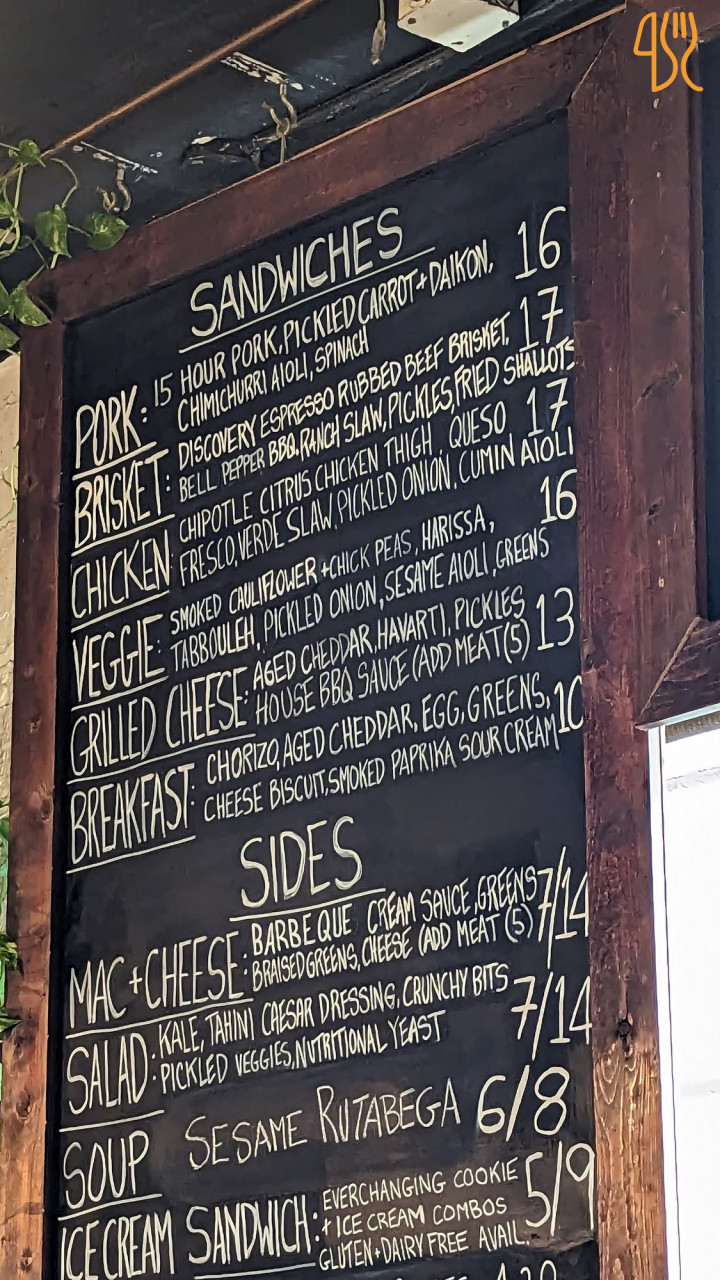 SANDWICHES
PORK: 15 HOUR PORK, PICKLED CARROT + DAIKON, 16
CHIMICHURRI AIOLI, SPINACH
BRISKET: DISCOVERY ESPRESSO RUBBED BEEF BRISKET, 17
BELL PEPPER BBQ, RANCH SLAW, PICKLES, FRIED SHALLOTS
CHICKEN: CHIPOTLE CITRUS CHICKEN THIGH, QUESO 17
FRESCO, VERDE SLAW, PICKLED ONION, CUMIN AIOLI
VEGGIE: SMOKED CAULIFLOWER + CHICK PEAS, HARISSA, 16
TABBOULEH, PICKLED ONION, SESAME AIOLI, GREENS
GRILLED CHEESE: AGED CHEDDAR, HAVARTI, PICKLES 13
HOUSE BBQ SAUCE (ADD MEAT (5)
BREAKFAST: CHORIZO, AGED CHEDDAR, EGG, GREENS, 10
CHEESE BISCUIT, SMOKED PAPRIKA SOUR CREAM
SIDES
MAC + CHEESE: BARBEQUE CREAM SAUCE, GREENS 7/14
BRAISED GREENS, CHEESE (ADD MEAT (5)
SALAD: KALE, TAHINI CAESAR DRESSING, CRUNCHY BITS 7/14
PICKLED VEGGIES, NUTRITIONAL YEAST
SOUP SESAME RUTABEGA 6/8
ICE CREAM SANDWICH: EVERCHANGING COOKIE 5/9
+ ICE CREAM COMBOS
GLUTEN + DAIRY FREE AVAIL.